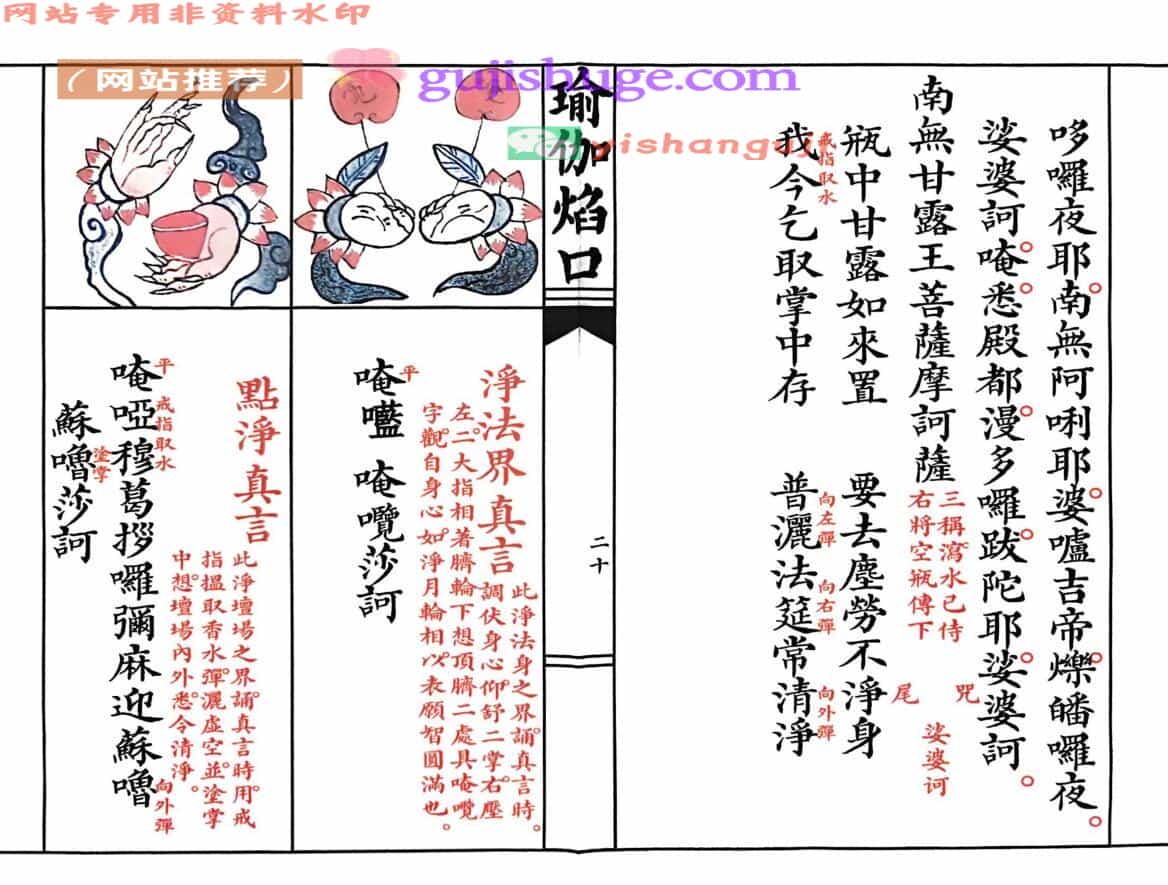 网站专用非资料水印
（网站推荐）
gujishuge.com
yishangguji
哆囉夜耶南無阿唎耶婆嚧吉帝爍皤囉夜
娑婆訶唵悉殿都漫多囉跋陀耶娑婆訶
南無甘露王菩薩摩訶薩
三稱瀉水已侍
右將空瓶傳下
咒
尾
娑婆诃
瓶中甘露如來置 要去塵勞不淨身
戒指取水 向左彈 向右彈 向外彈
我今乞取掌中存 普灑法筵常清淨
瑜伽焰口
二十
淨法界真言
此淨法身之界誦真言時
調伏身心仰舒二掌右壓
左二大指相著臍輪下想頂臍二處具唵㘕
字觀自身心如淨月輪相以表願智圓滿也
平
唵㘕 唵囕莎訶
點淨真言
此淨壇場之界誦真言時用戒
指搵取香水彈灑虛空並塗掌
中想壇場內外悉令清淨
平 戒指取水 向外彈
唵啞穆葛拶囉彌麻迎蘇嚕
塗掌
蘇嚕莎訶